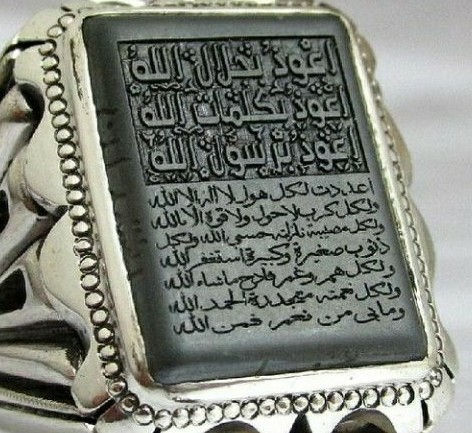 اعوذ بجلال الله
اعوذ بكلمات الله
اعوذ برسول الله
اعددت لكل هول لا اله الا الله
ولكل كرب لاحول ولا قوة الا بالله
ولكل مصيبة نازلة حسبي الله ولكل
ذنوب صغيرة وكبيرة استغفر الله
ولكل هم وغم فادح ماشاء الله
ولكل متجددة الحمد لله
وما بي من فمن الله